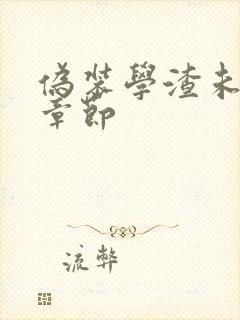 偽裝學渣未
章節
流弊